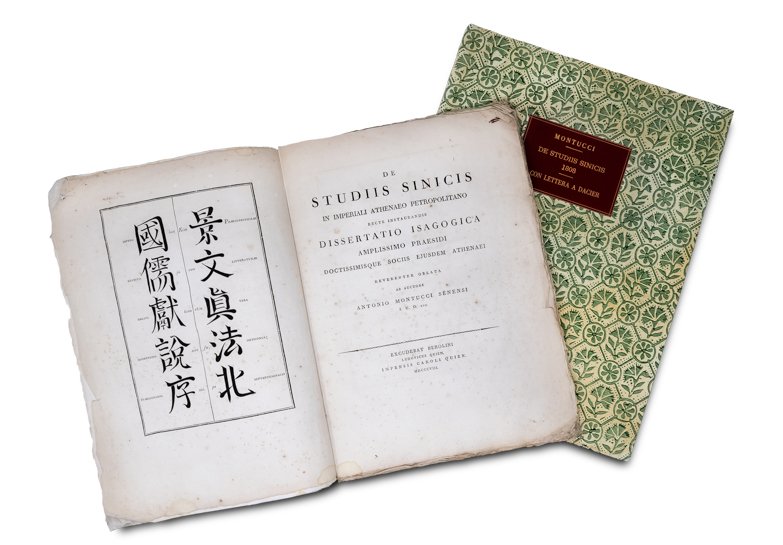 景文眞法北
國儒獻說序
DE
STUDIIS SINICIS
IN IMPERIALI ATHENAEO PETROPOLITANO
RECTE INSTAURANDIS
DISSERTATIO ISAGOGICA
AMPLISSIMO PRAESIDI
DOCTISSIMISQUE SOCIIS EJUSDEM ATHENAEI
REVERENTER OBLATA
AB AUCTORE
ANTONIO MONTUCCI SENENSI
EXCUDEBAT BEROLINI
LUDOVICUS QUIEN,
IMPENSIS CAROLI QUIEN.
MDCCCVIII.
MONTUCCI
DE STUDIIS SINICIS
1808
CON LETTERA A DACIER